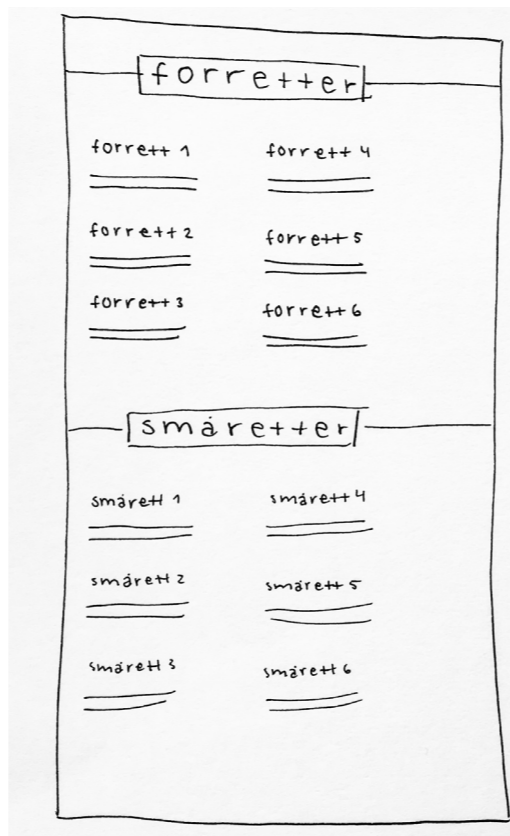 forretter
forrett 1
forrett 4
forrett 2
forrett 5
forrett 3
forrett 6
småretter
smårett 1
smårett 4
smårett 2
smårett 5
smårett 3
smårett 6